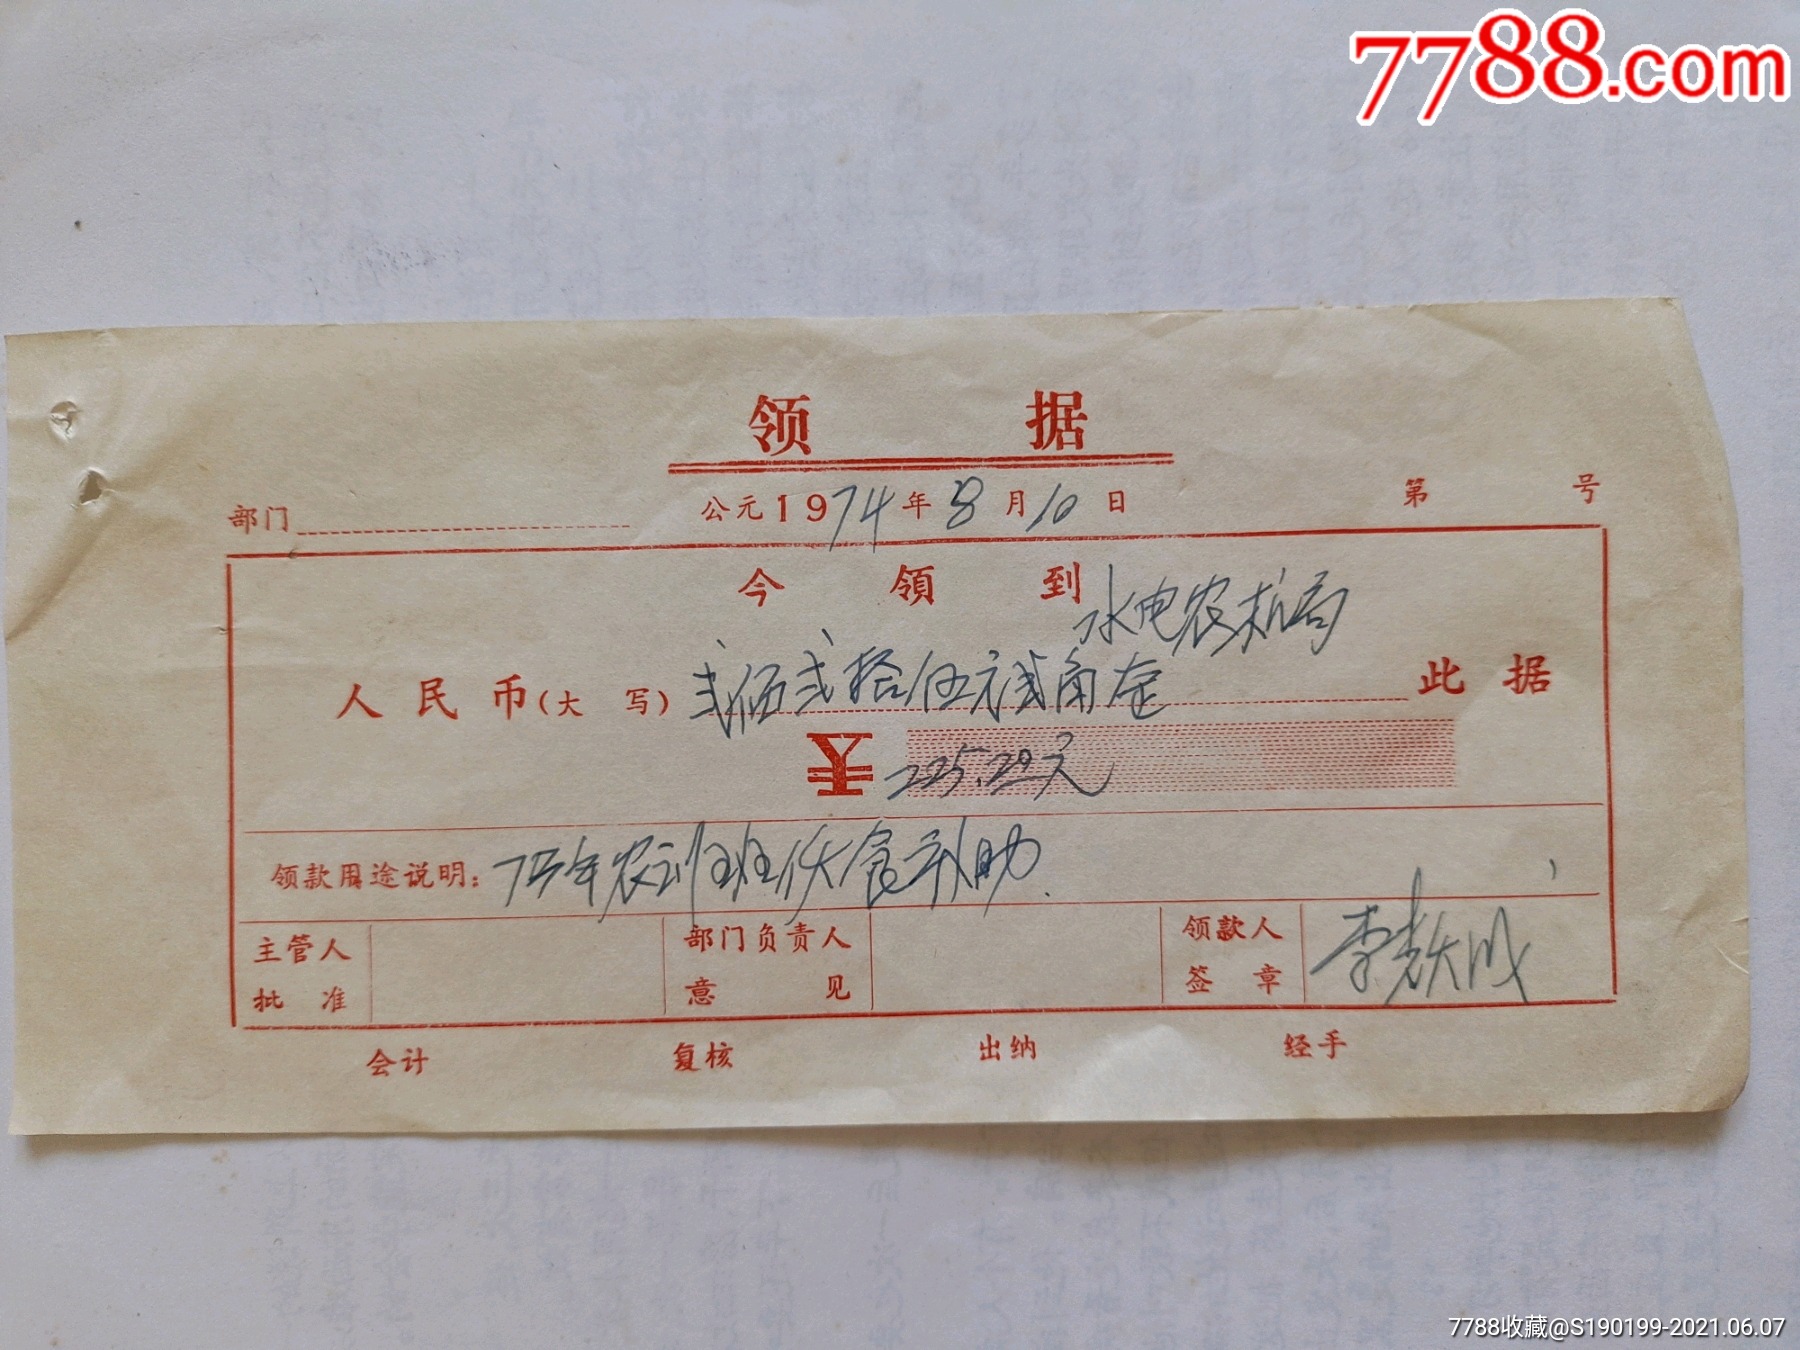 7788.com
领 据
部门 公元1974年8月10日 第 号
今 领 到 水电农机局
人民币(大 写) 弍佰弍拾伍元弍角正 此据
¥ 225.20元
领款用途说明: 75年农训班伙食补助.
主管人批准 部门负责人意见 领款人签章 李
会计 复核 出纳 经手
7788收藏@S190199-2021.06.07